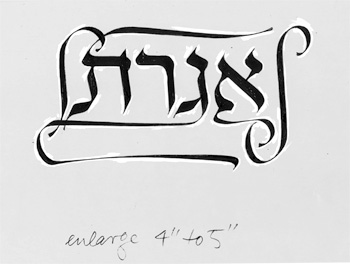 אגרת
enlarge 4" to 5"